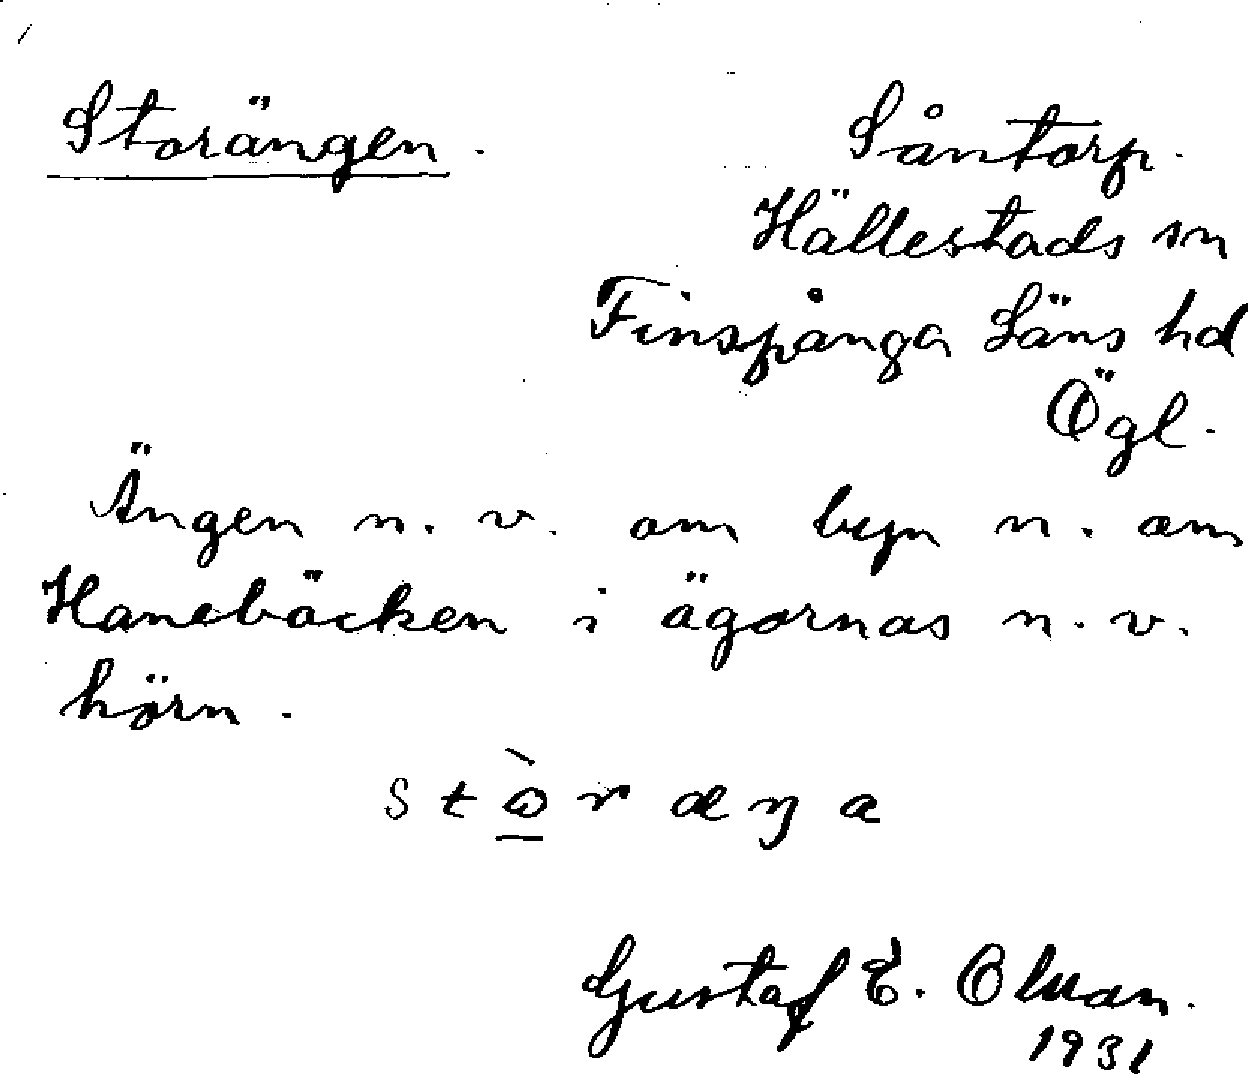 Storängen. Såntorp.
Hällestads sn
Finspånga Läns hd
Ögl.
Ängen n. v. om byn n. om
Hanebäcken i ägornas n. v.
hörn.
s t ò̱ r æ ŋ a
Gustaf E. Olman.
1931